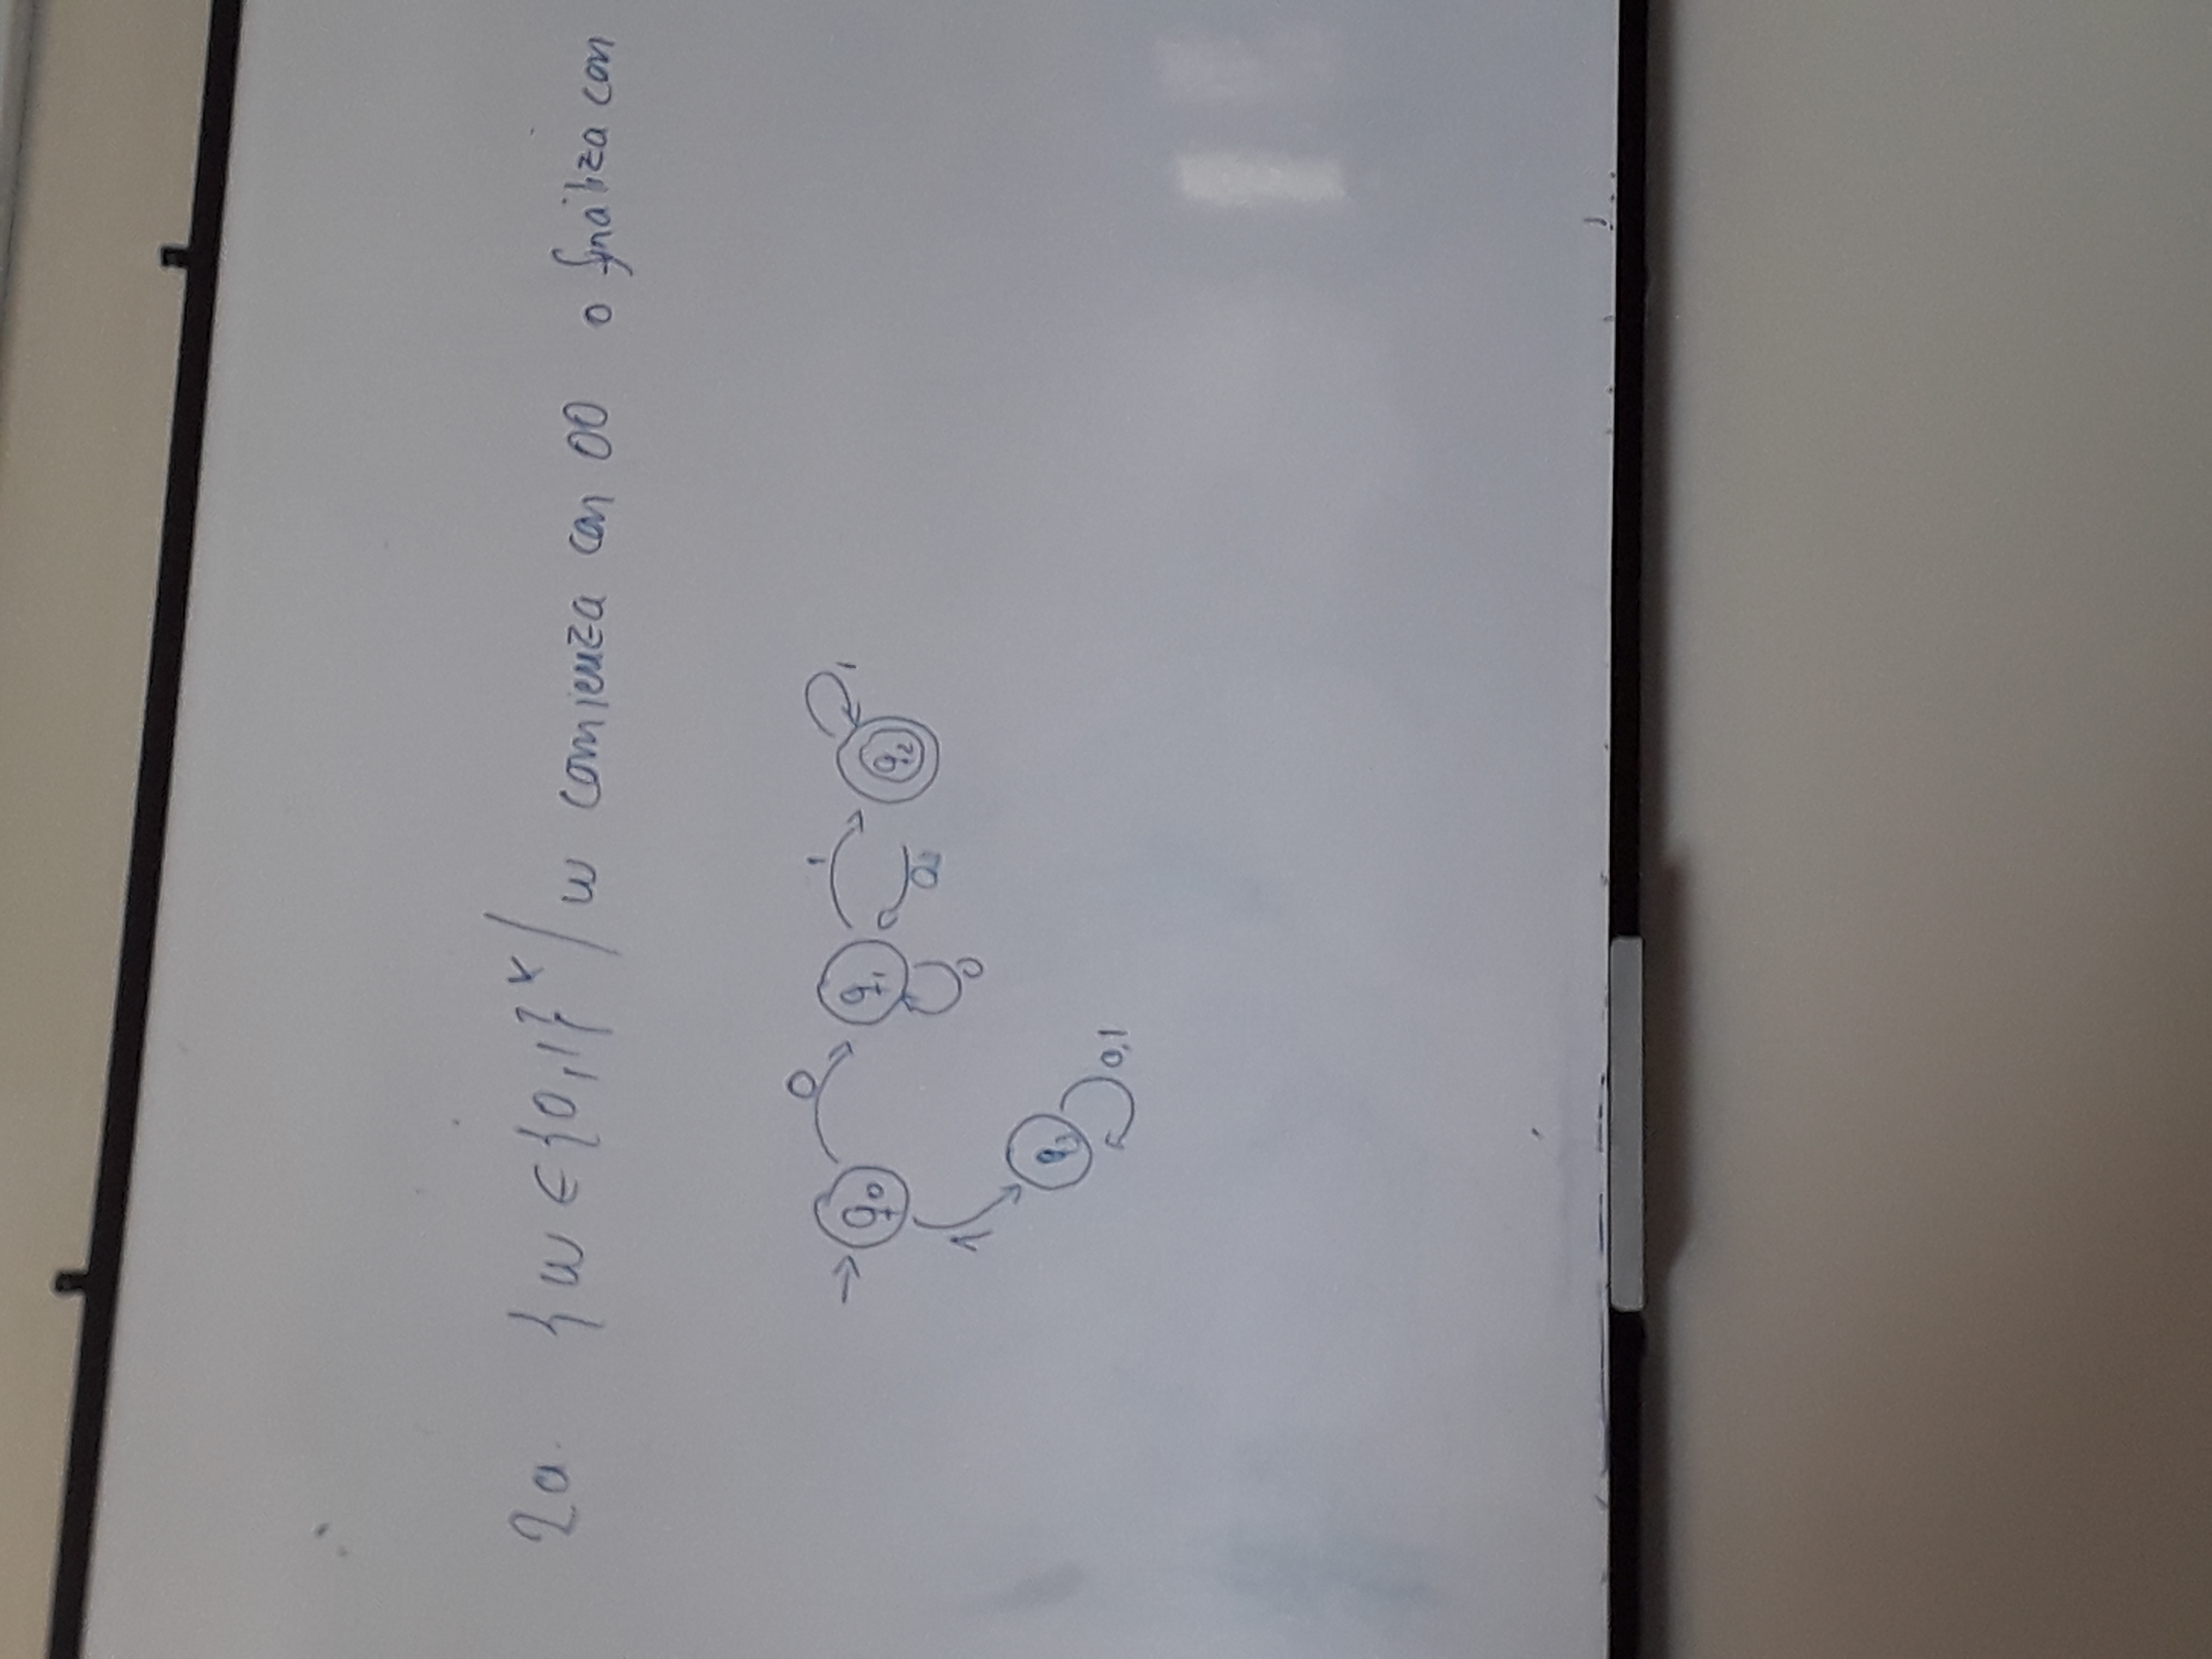 2a. {w ∈ {0,1}* / w comienza con 00 o finaliza con
0 1 1
→ q0 q1 q2
0
1 0
q3
0,1